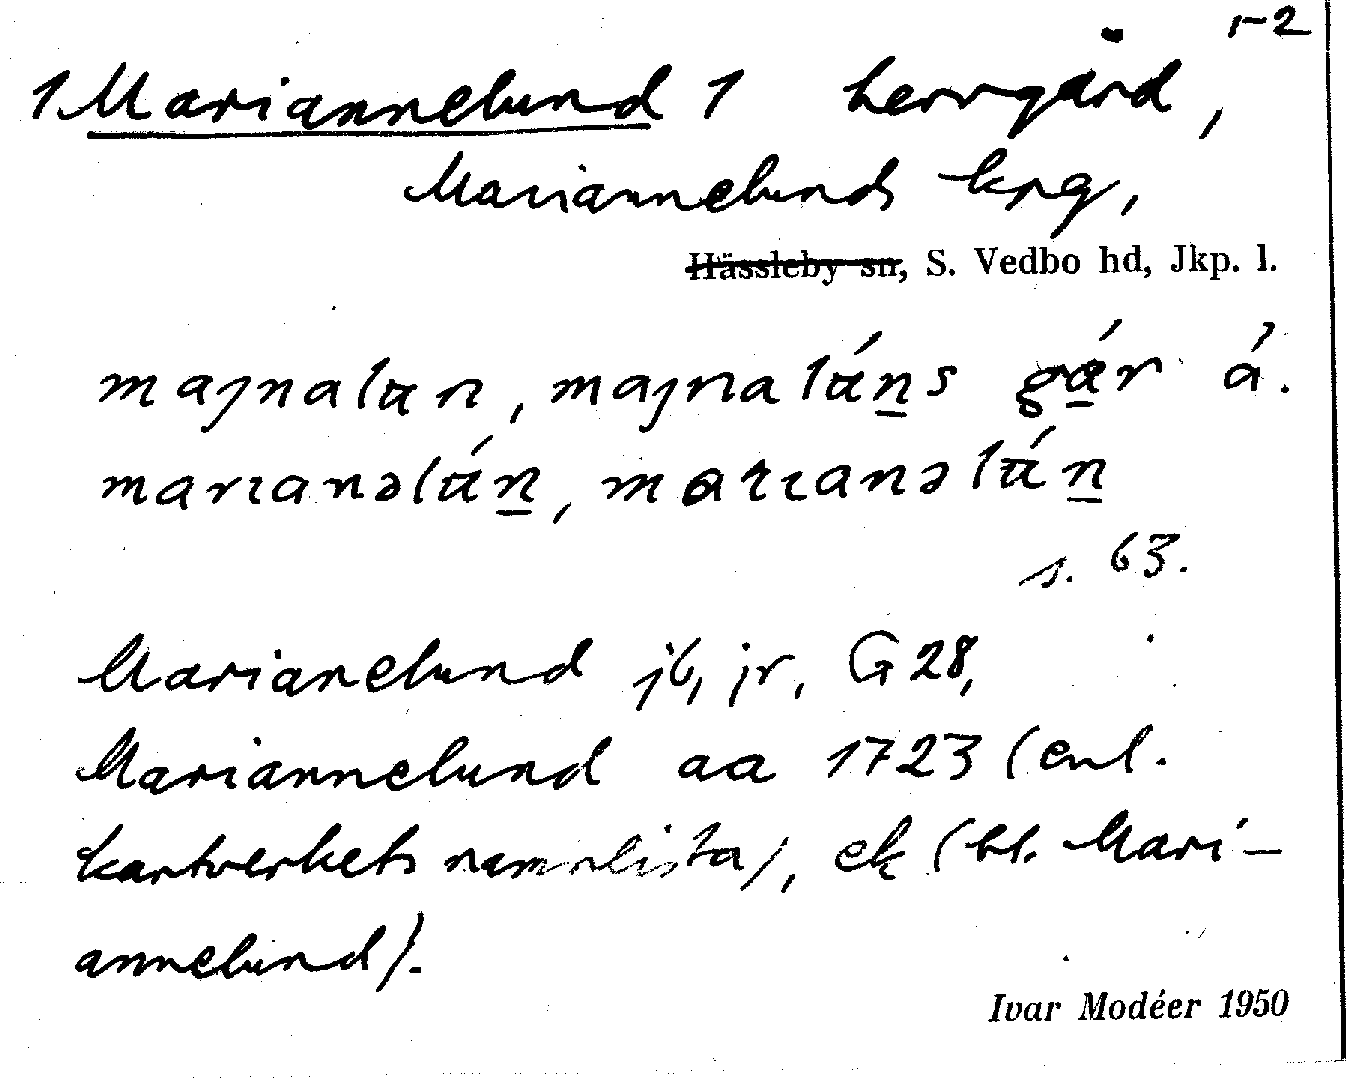 1-2
1 Mariannelund 1 herrgård,
Mariannelunds kpg,
Hässleby sn, S. Vedbo hd, Jkp. l.
majnalun, majnalúns gár á.
marıanəlún, marıanəlún
s. 63.
Marianelund jb, jr, G 28,
Mariannelund aa 1723 (enl.
kartverkets namnlista), ek (bl. Mari-
annelund).
Ivar Modéer 1950